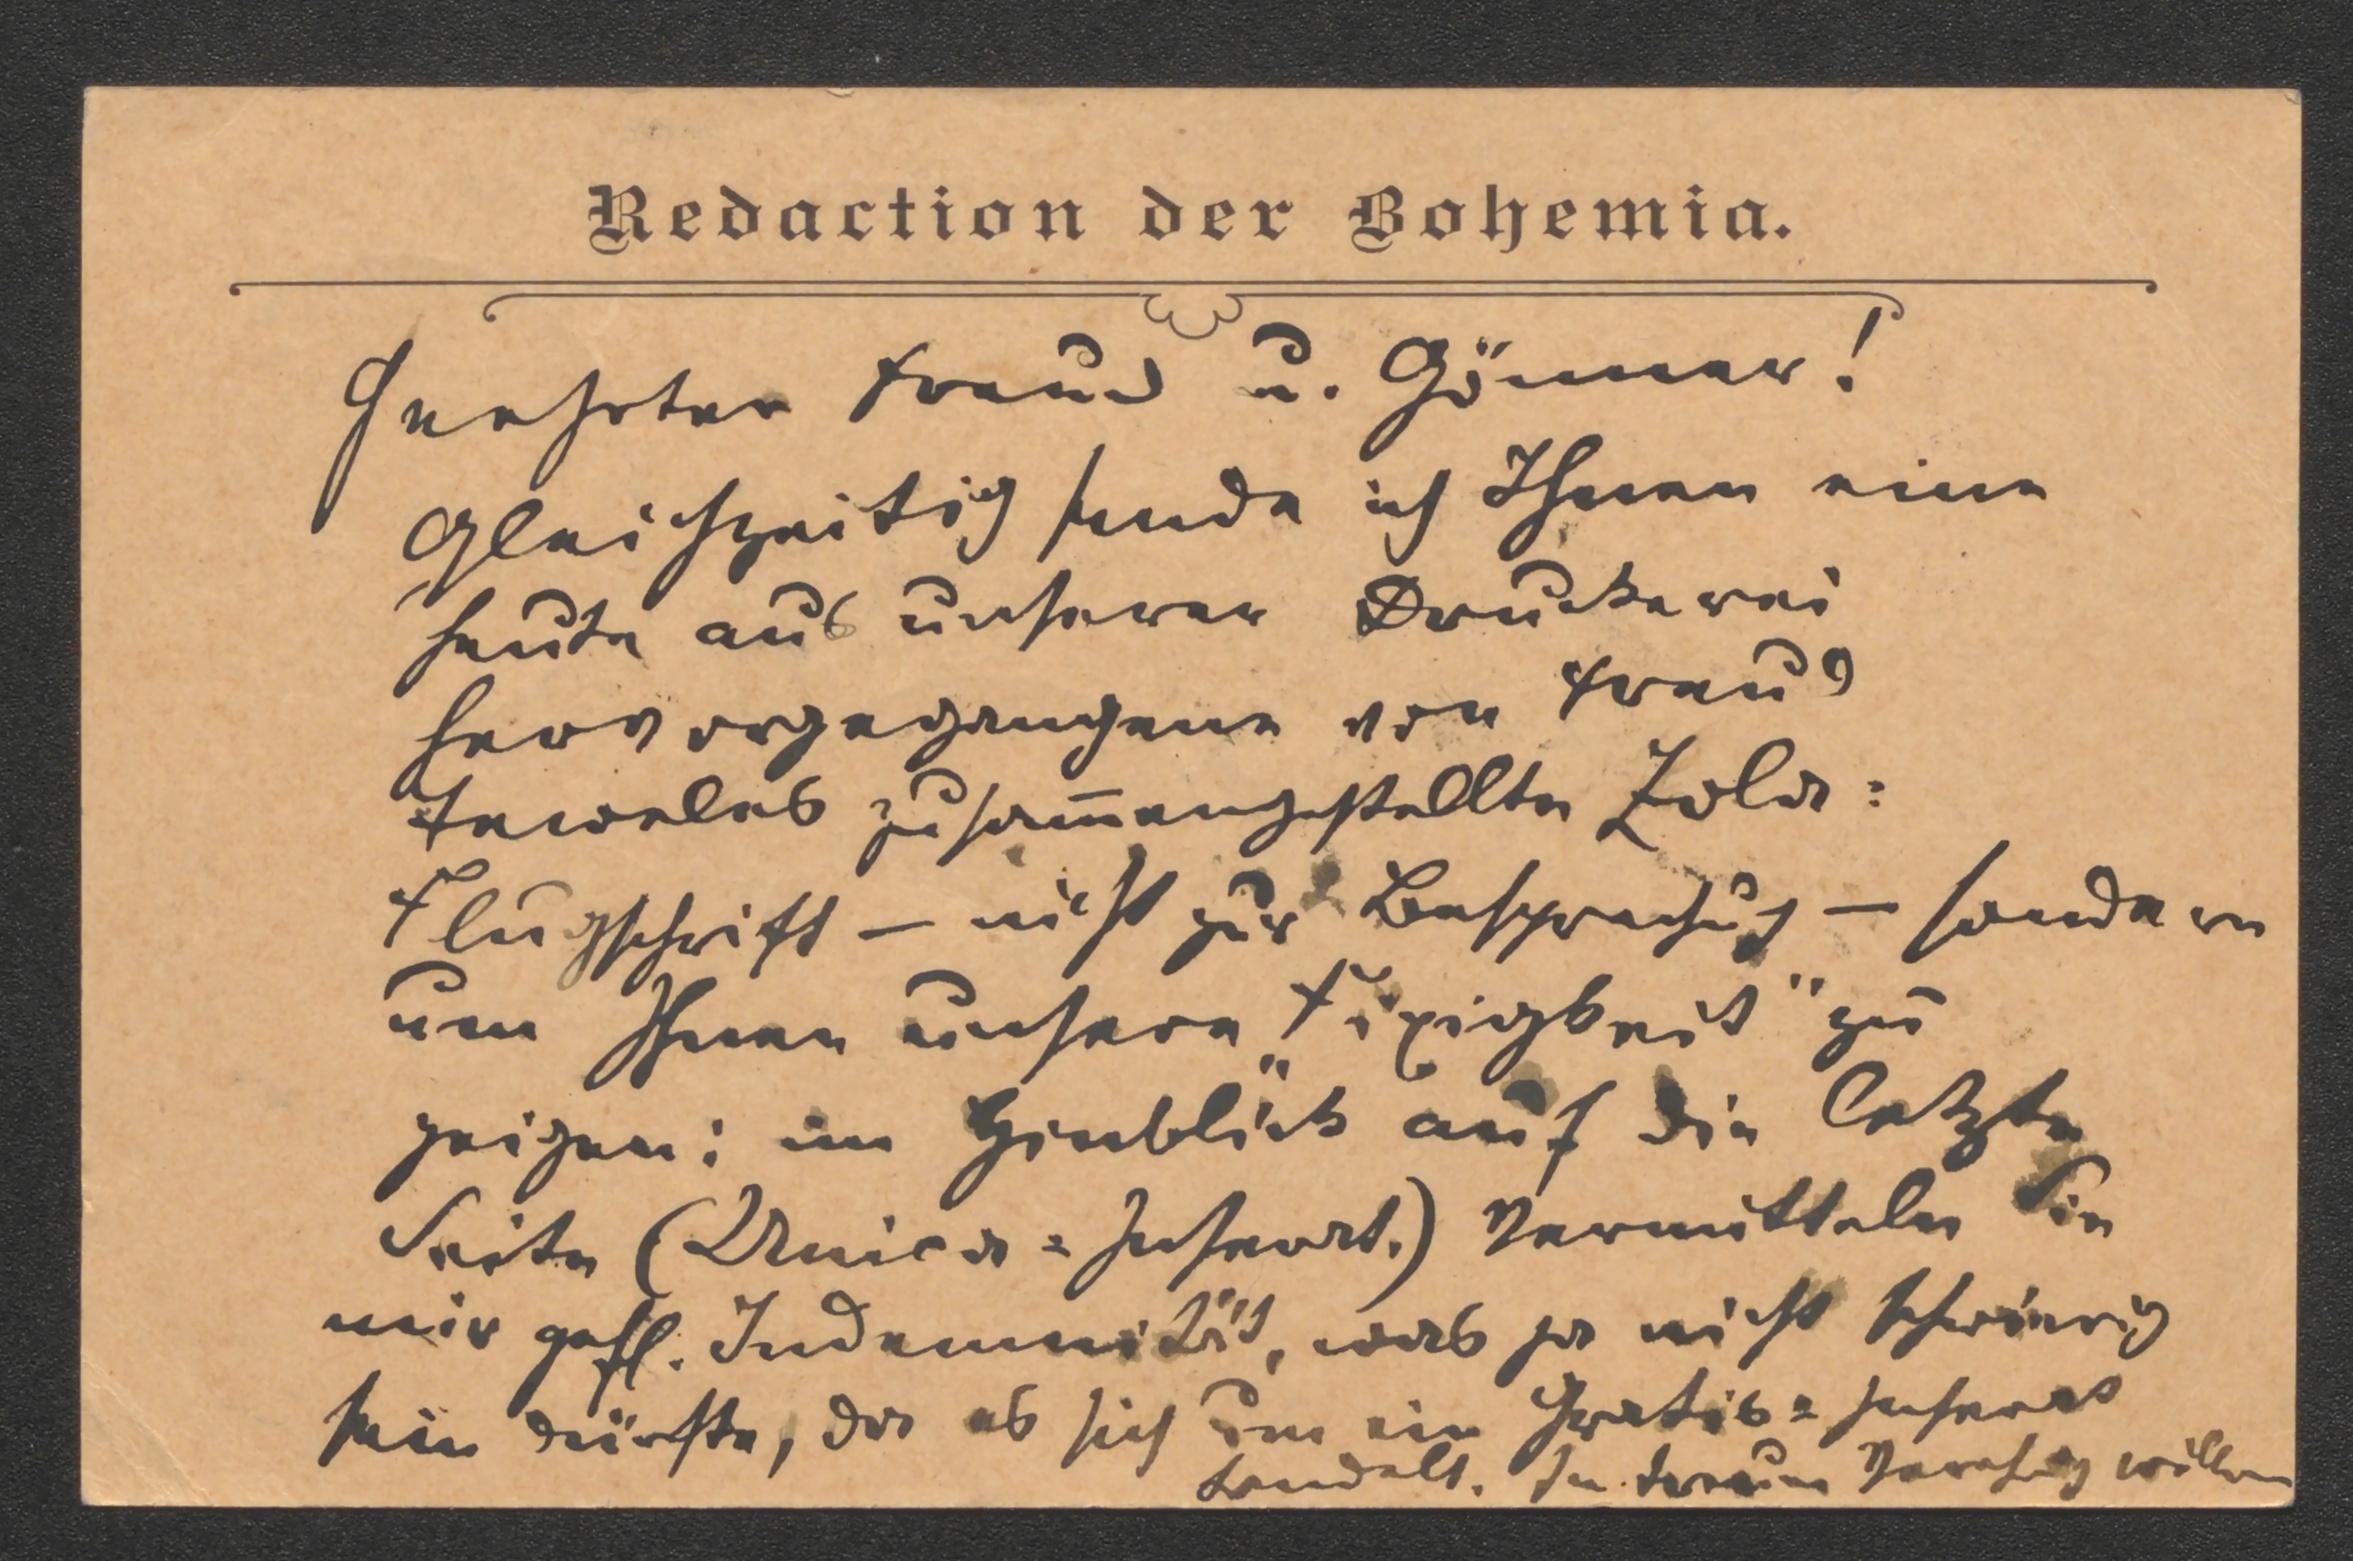 Redaction der Bohemia.
Geehrter Freund u. Gönner!
Gleichzeitig sende ich Ihnen eine
heute aus unserer Druckerei
hervorgegangene von Freund
Teweles zusam̅engestellte Zola=
Flugschrift – nicht zur Besprechung – sondern
um Ihnen unsere „Fixigkeit" zu
zeigen; im Hinblick auf die letzte
Seite (Unica=Inserat.) Vermitteln Sie
mir gefl. Indemnität, was ja nicht schwierig
sein dürfte, da es sich um ein Gratis=Inserat
handelt. In treuer Verehrung